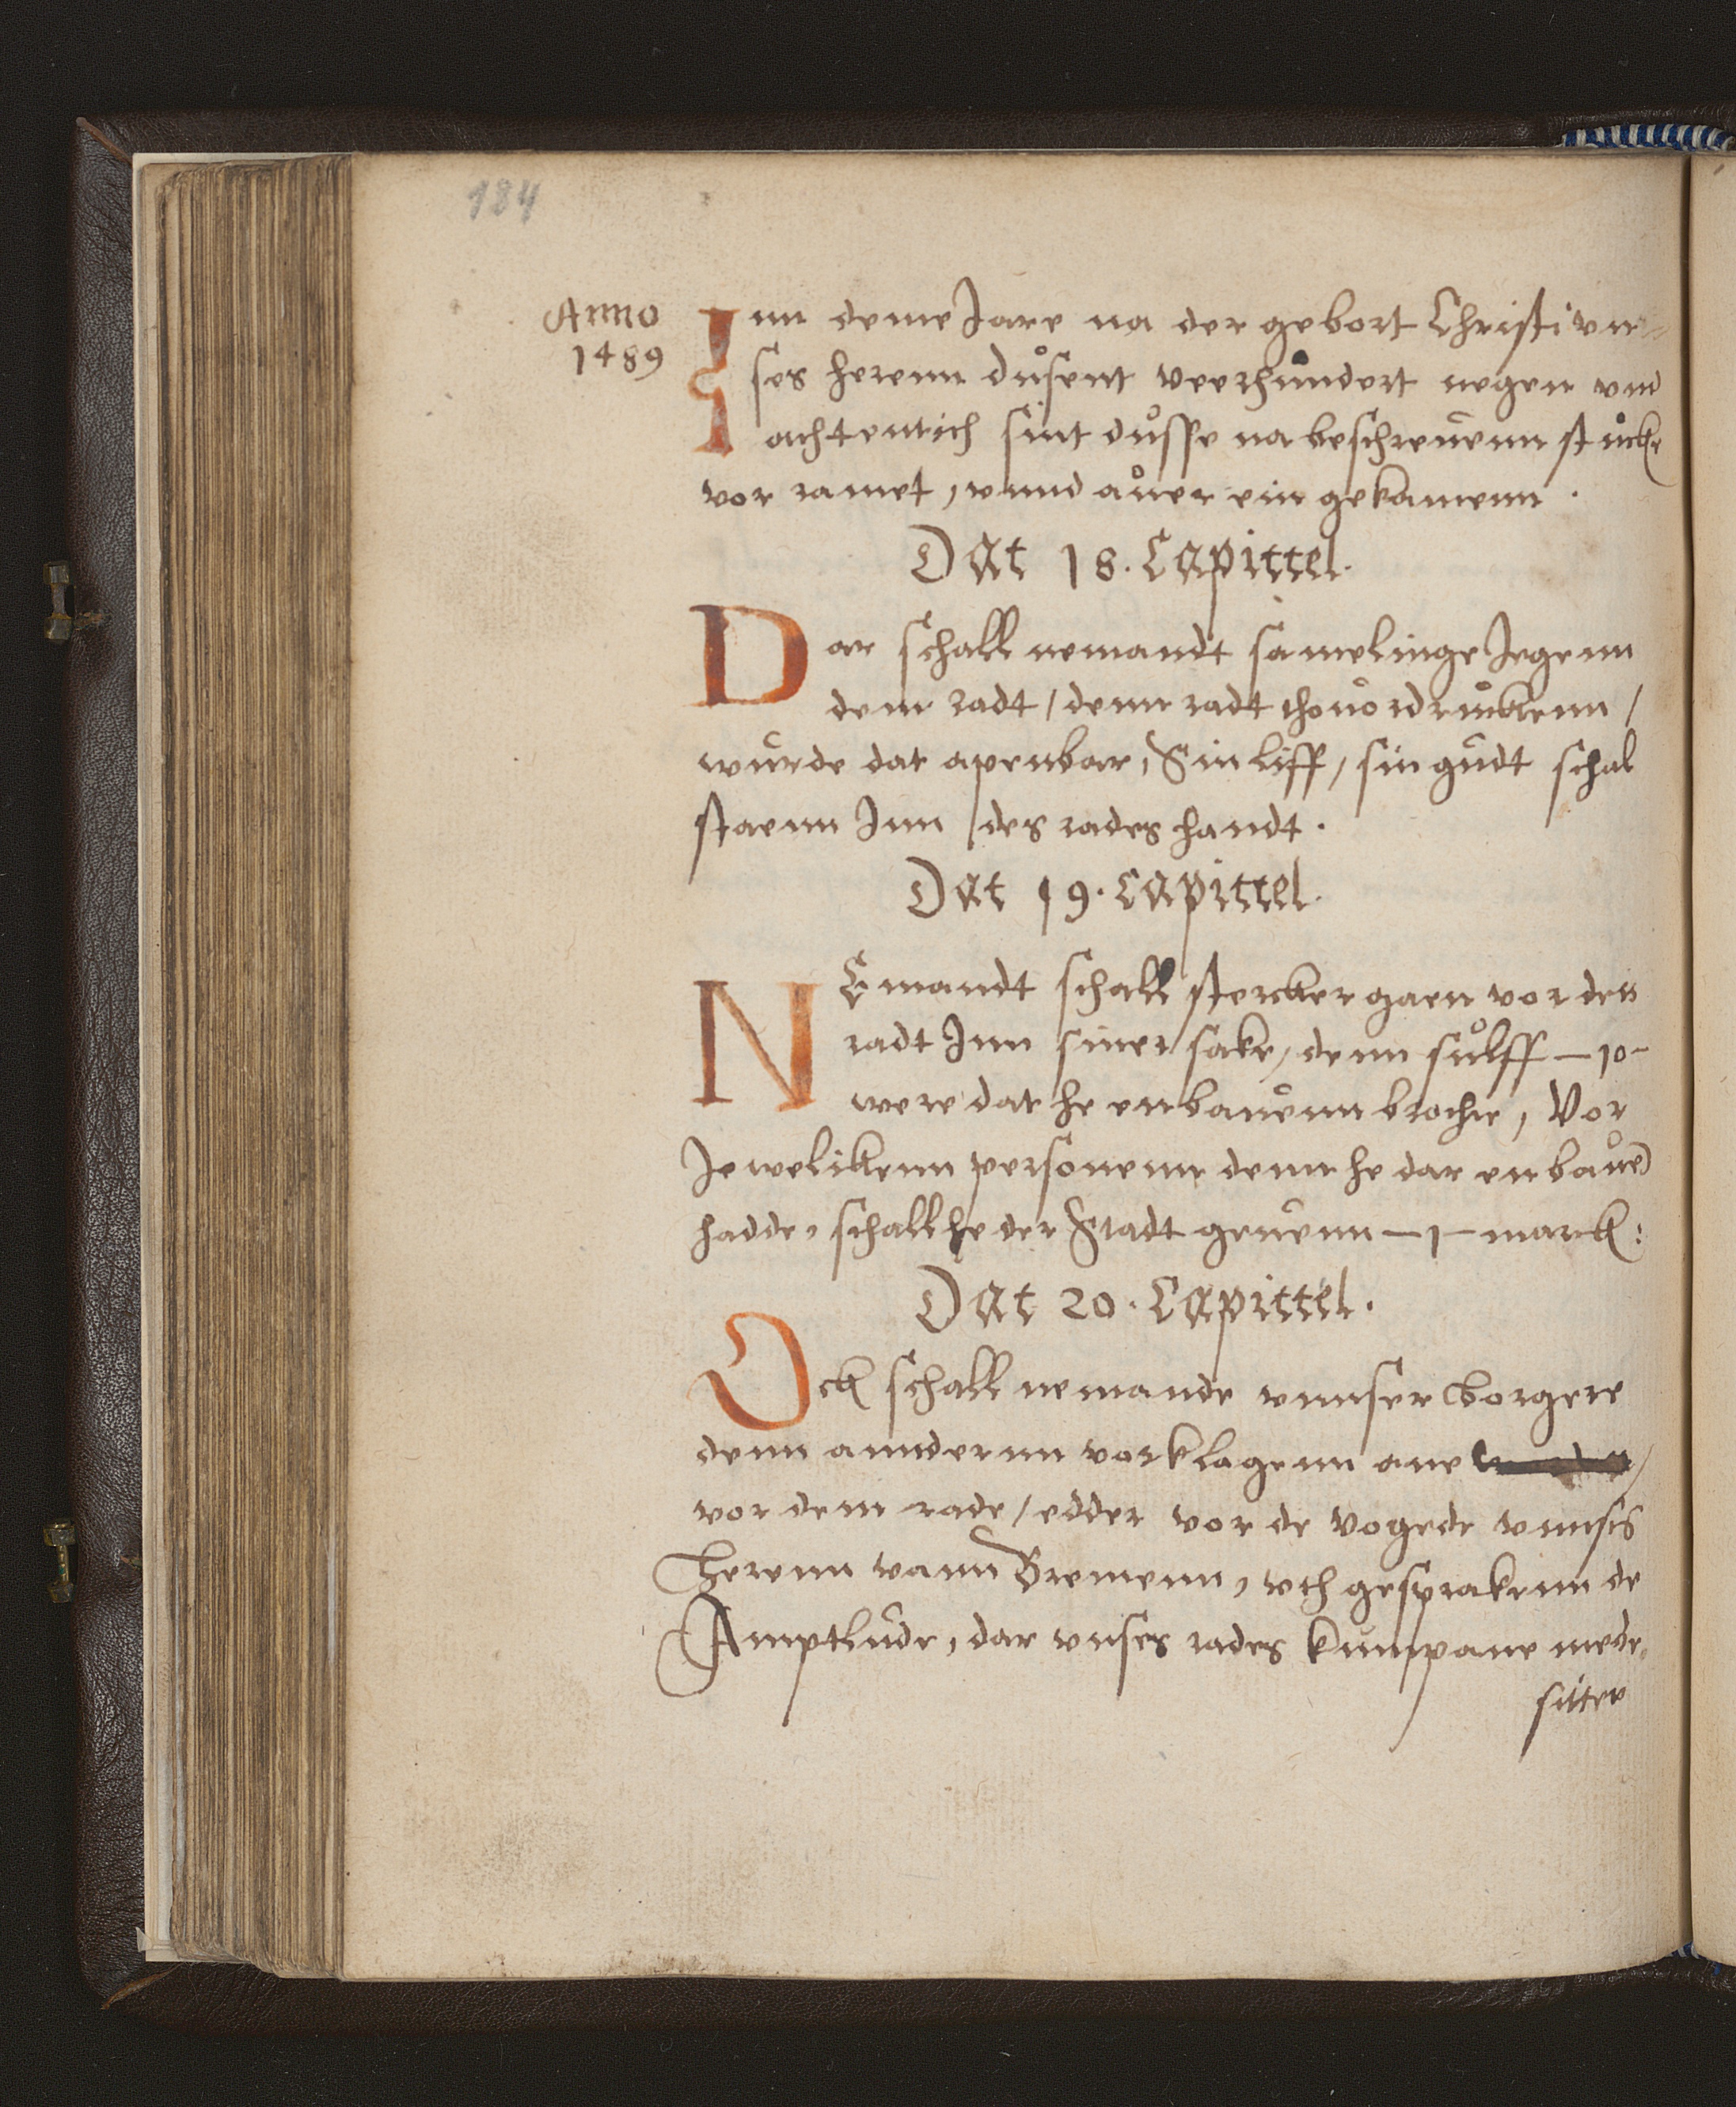 184
Anno
1489
Inn deme Jare na der gebort Christi vn=
ses herenn dusent veerhundert negen vnd
achtentich sint dusse nabeschreuenn stucke
vor ramet, vnnd auer ein gekamenn .
Dat 18. Capittel.
Dar schall nemandt samelinge Jegenn
dem radt / denn radt thouordruckenn /
wurde dat apenbar, Sin liff, sin gudt schal
staenn Inn des rades handt .
Dat 19. Capittel.
NEmandt schall stercker gaen vor den
radt Inn siner sake, denn sulff – 10 –
were dat he enbauenn broche, Vor
Jewelikenn personenn denn he dar enbauen
hadde, schall he der Stadt geuenn – 1 – marck :
Dat 20. Capittel.
Ock schall nemande vnnser borgere
denn anndernn vorklagenn ane
vor dem rade / edder vor de vogede vnnses
Herenn vann Bremenn, vth gesprakenn de
Amptlude, dar vnses rades kumpane mede
sitten